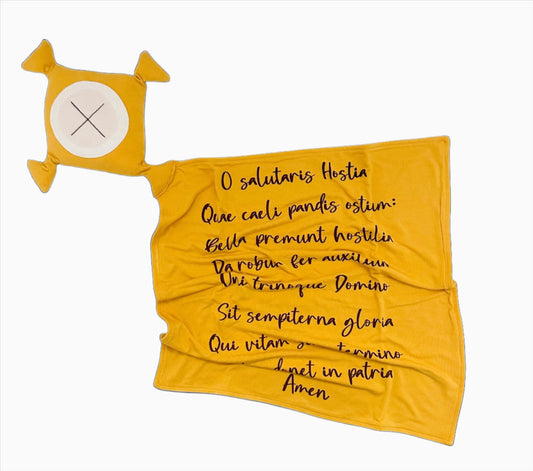 O salutaris Hostia
Quae caeli pandis ostium:
Bella premunt hostilia
Da robur fer auxilium
Uni trinoque Domino
Sit sempiterna gloria
Qui vitam termino
net in patria
Amen